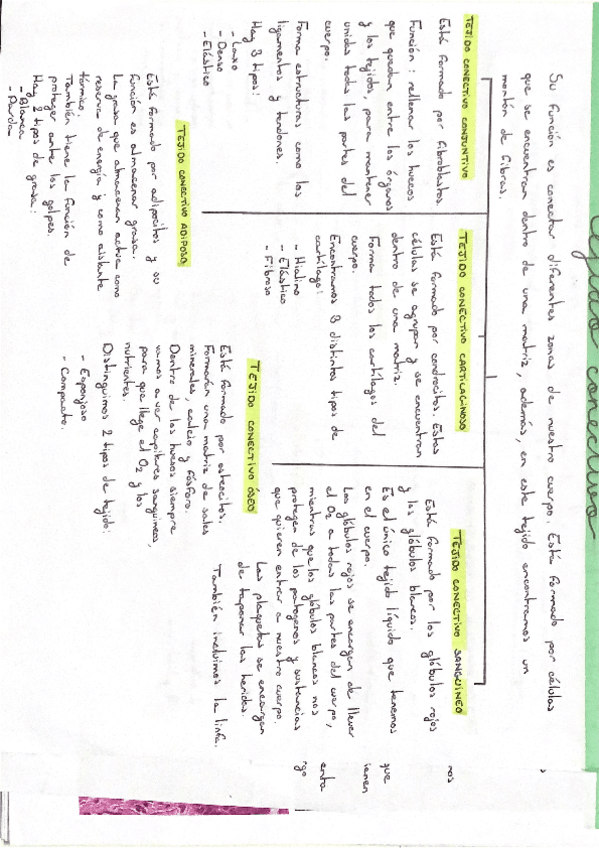 Tejido conectivo
Su función es conectar diferentes zonas de nuestro cuerpo. Está formado por células
que se encuentran dentro de una matriz, además, en este tejido encontramos un
montón de fibras.
TEJIDO CONECTIVO CONJUNTIVO
Está formado por fibroblastos
Función: rellenar los huecos
que quedan entre los órganos
y los tejidos, para mantener
unidas todas las partes del
cuerpo.
Forma estructuras como los
ligamentos y tendones.
Hay 3 tipos:
- Laxo
- Denso
- Elástico
TEJIDO CONECTIVO CARTILAGINOSO
Está formado por condrocitos. Estas
células se agrupan y se encuentran
dentro de una matriz.
Forma todos los cartílagos del
cuerpo.
Encontramos 3 distintos tipos de
cartílago:
- Hialino
- Elástico
- Fibroso
TEJIDO CONECTIVO SANGUÍNEO
Está formado por los glóbulos rojos
y los glóbulos blancos.
Es el único tejido líquido que tenemos
en el cuerpo.
Los glóbulos rojos se encargan de llevar
el O2 a todas las partes del cuerpo,
mientras que los glóbulos blancos nos
protegen de los patógenos y sustancias
que quieren entrar a nuestro cuerpo.
Las plaquetas se encargan
de taponar las heridas.
También incluimos la linfa.
TEJIDO CONECTIVO ADIPOSO
Está formado por adipocitos y su
función es almacenar grasa.
La grasa que almacenan actúa como
reserva de energía y como aislante
térmico.
También tiene la función de
proteger ante los golpes.
Hay 2 tipos de grasa:
- Blanca
- Parda
TEJIDO CONECTIVO ÓSEO
Está formado por osteocitos.
Formarán una matriz de sales
minerales, calcio y fósforo.
Dentro de los huesos siempre
vamos a ver capilares sanguíneos,
para que llege el O2 y los
nutrientes.
Distinguimos 2 tipos de tejido:
- Esponjoso
- Compacto.
s
nos
que
ienen
enta
rgo